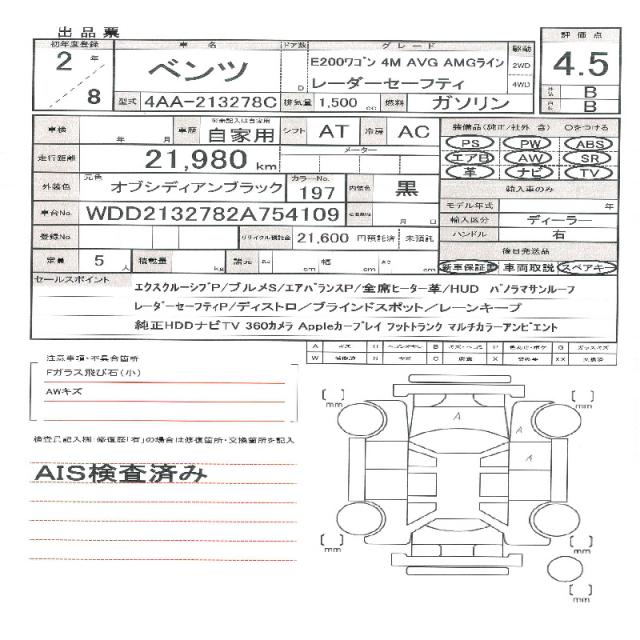 出品票
初年度登録 車名 ドア数 グレード 駆動 評価点
2年/8 ベンツ D E200ワゴン 4M AVG AMGライン 2WD 4.5
レーダーセーフティ 4WD
型式 4AA-213278C 排気量 1,500 cc 燃料 ガソリン B
B
車検 年 月 車歴 自家用 シフト AT 冷房 AC 装備品(純正/社外 含) ○をつける
PS PW ABS
走行距離 21,980 km メーター エアB AW SR
革 ナビ TV
外装色 元色 オブシディアンブラック カラーNo. 197 内装色 黒 輸入車のみ
モデル年式 年
車台No. WDD2132782A754109 月 日 輸入区分 ディーラー
登録No. リサイクル預託金 21,600 円預託済 未預託 ハンドル 右
後日発送品
定員 5人 積載量 kg 諸元 長さ cm 幅 cm 高さ cm 新車保証書 車両取説 スペアキー
セールスポイント
エクスクルーシブP/ブルメS/エアバランスP/全席ヒーター革/HUD パノラマサンルーフ
レーダーセーフティP/ディストロ/ブラインドスポット/レーンキープ
純正HDDナビTV 360カメラ Appleカープレイ フットトランク マルチカラーアンビエント
注意事項・不具合箇所
Fガラス飛び石(小)
AWキズ
検査員記入欄 修復歴「有」の場合は修復箇所・交換箇所を記入
AIS検査済み
A
A
mm
mm
mm
mm
mm